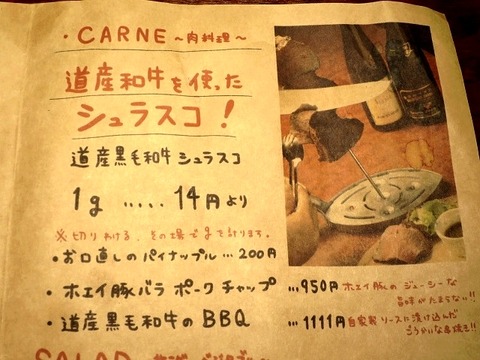 ・CARNE ～肉料理～
道産和牛を使った
シュラスコ！
道産黒毛和牛シュラスコ
1g ..... 14円より
※切り分ける、その場でgを計ります。
・お口直しのパイナップル … 200円
・ホエイ豚バラ ポークチャップ …950円 ホエイ豚のジューシーな
旨味がたまらない!!
・道産黒毛和牛のBBQ …1111円 自家製ソースに漬け込んだ
ごうかいな串焼き!!
SALAD